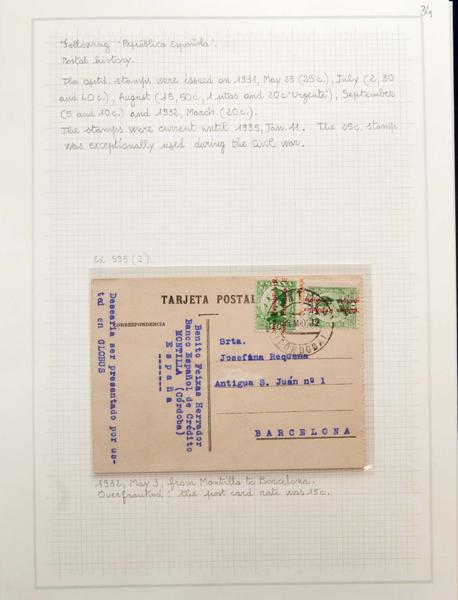 34
Following "República Española".
Postal history.
The optd. stamps were issued on 1931, May 23 (25c.), July (2, 30
and 40c.), August (15, 50c., 1 ptas and 20c "Urgente"), September
(5 and 10c.) and 1932, March (20c.).
The stamps were current until 1935, Jan. 11. The 25c. stamp
was exceptionally used during the Civil War.
Ed. 595 (2).
TARJETA POSTAL
CORRESPONDENCIA
Srta.
Josefána Requena
Antigua S. Juán nº 1
BARCELONA
Benito Feixas Herrador
Banco Español de Crédito
MONTILLA (Córdoba)
España
Desearia ser presentado por us-
ted en GLOBUS
32
(CORDOBA)
1932, May 3, from Montilla to Barcelona.
Overfranked: the post card rate was 15c.